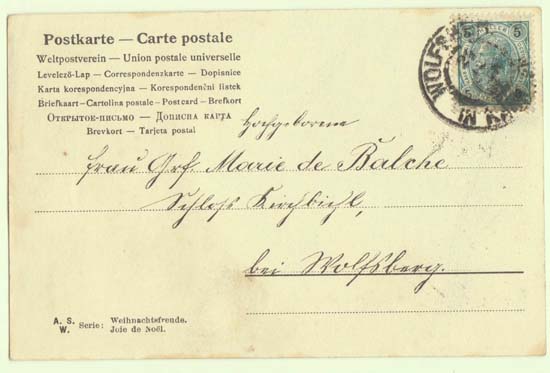 Postkarte — Carte postale
Weltpostverein — Union postale universelle
Levelező-Lap — Correspondenzkarte — Dopisnice
Karta korespondencyjna — Korespondenční lístek
Briefkaart — Cartolina postale — Postcard — Brefkort
ОТКРЫТОЕ-ПИСЬМО — ДОПИСНА КАРТА
Brevkort — Tarjeta postal
5 5
WOLFS
Hochgeborene
Frau Grf. Marie de Balche
Schloß Kirchbichl,
bei Wolfsberg.
A. S. W. Serie: Weihnachtsfreude.
Joie de Noël.